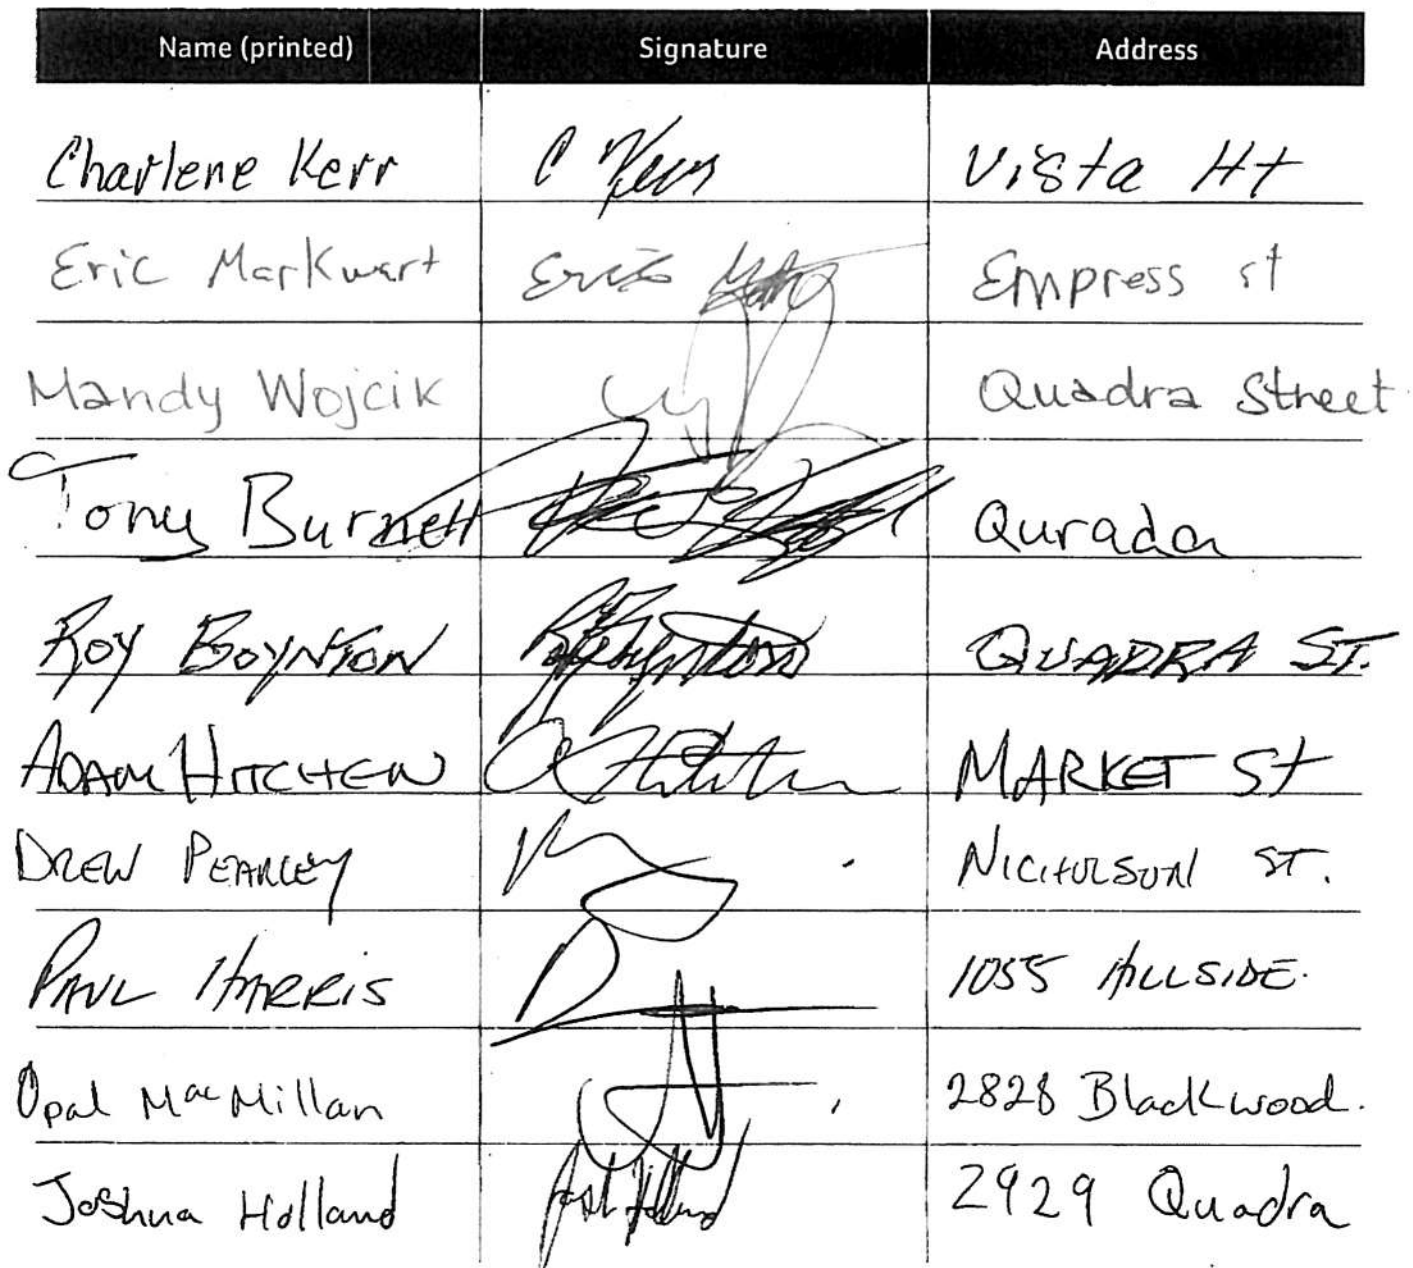 Name (printed) Signature Address
Charlene Kerr C Kerr Vista Ht
Eric Markwart Eric Empress st
Mandy Wojcik Quadra Street
Tony Burnett Qurada
ROY BOYNTON R Boynton QUADRA ST.
ADAM HITCHEN MARKET St
DREW PEARCEY NICHOLSON ST.
PAUL HARRIS 1055 HILLSIDE.
Opal MacMillan 2828 Blackwood.
Joshua Holland Josh Holland 2929 Quadra